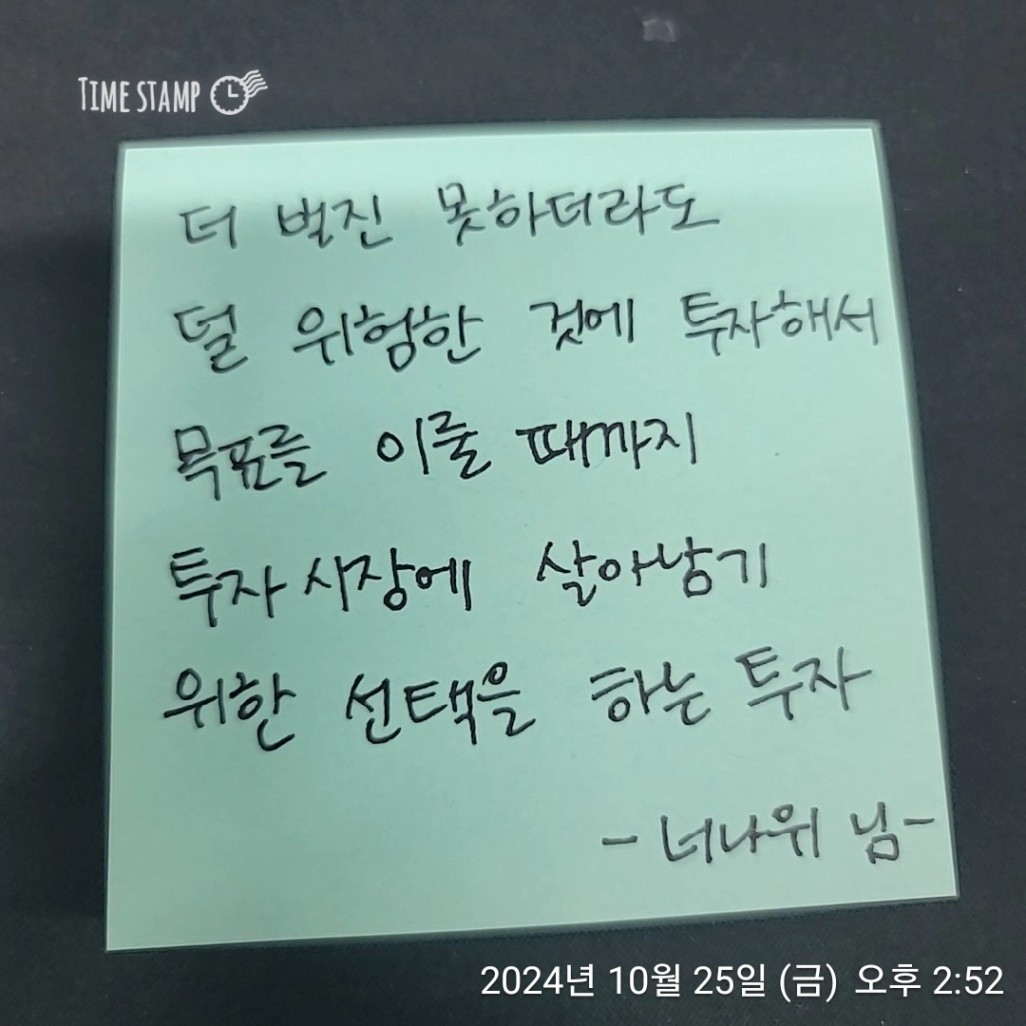 TIME STAMP
더 벌진 못하더라도
덜 위험한 것에 투자해서
목표를 이룰 때까지
투자 시장에 살아남기
위한 선택을 하는 투자
- 너나위 님 -
2024년 10월 25일 (금) 오후 2:52